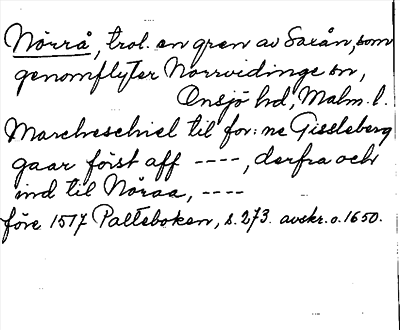 Nörrå, trol. en gren av Saxån, som
genomflyter Norrvidinge sn,
Onsjö hd, Malm. l.
Marcheschiel til for: ne Gissleberg
gaar först aff ----, derfra och
ind til Nöraa, ----
före 1517 Palteboken, s. 273. avskr. o. 1650.